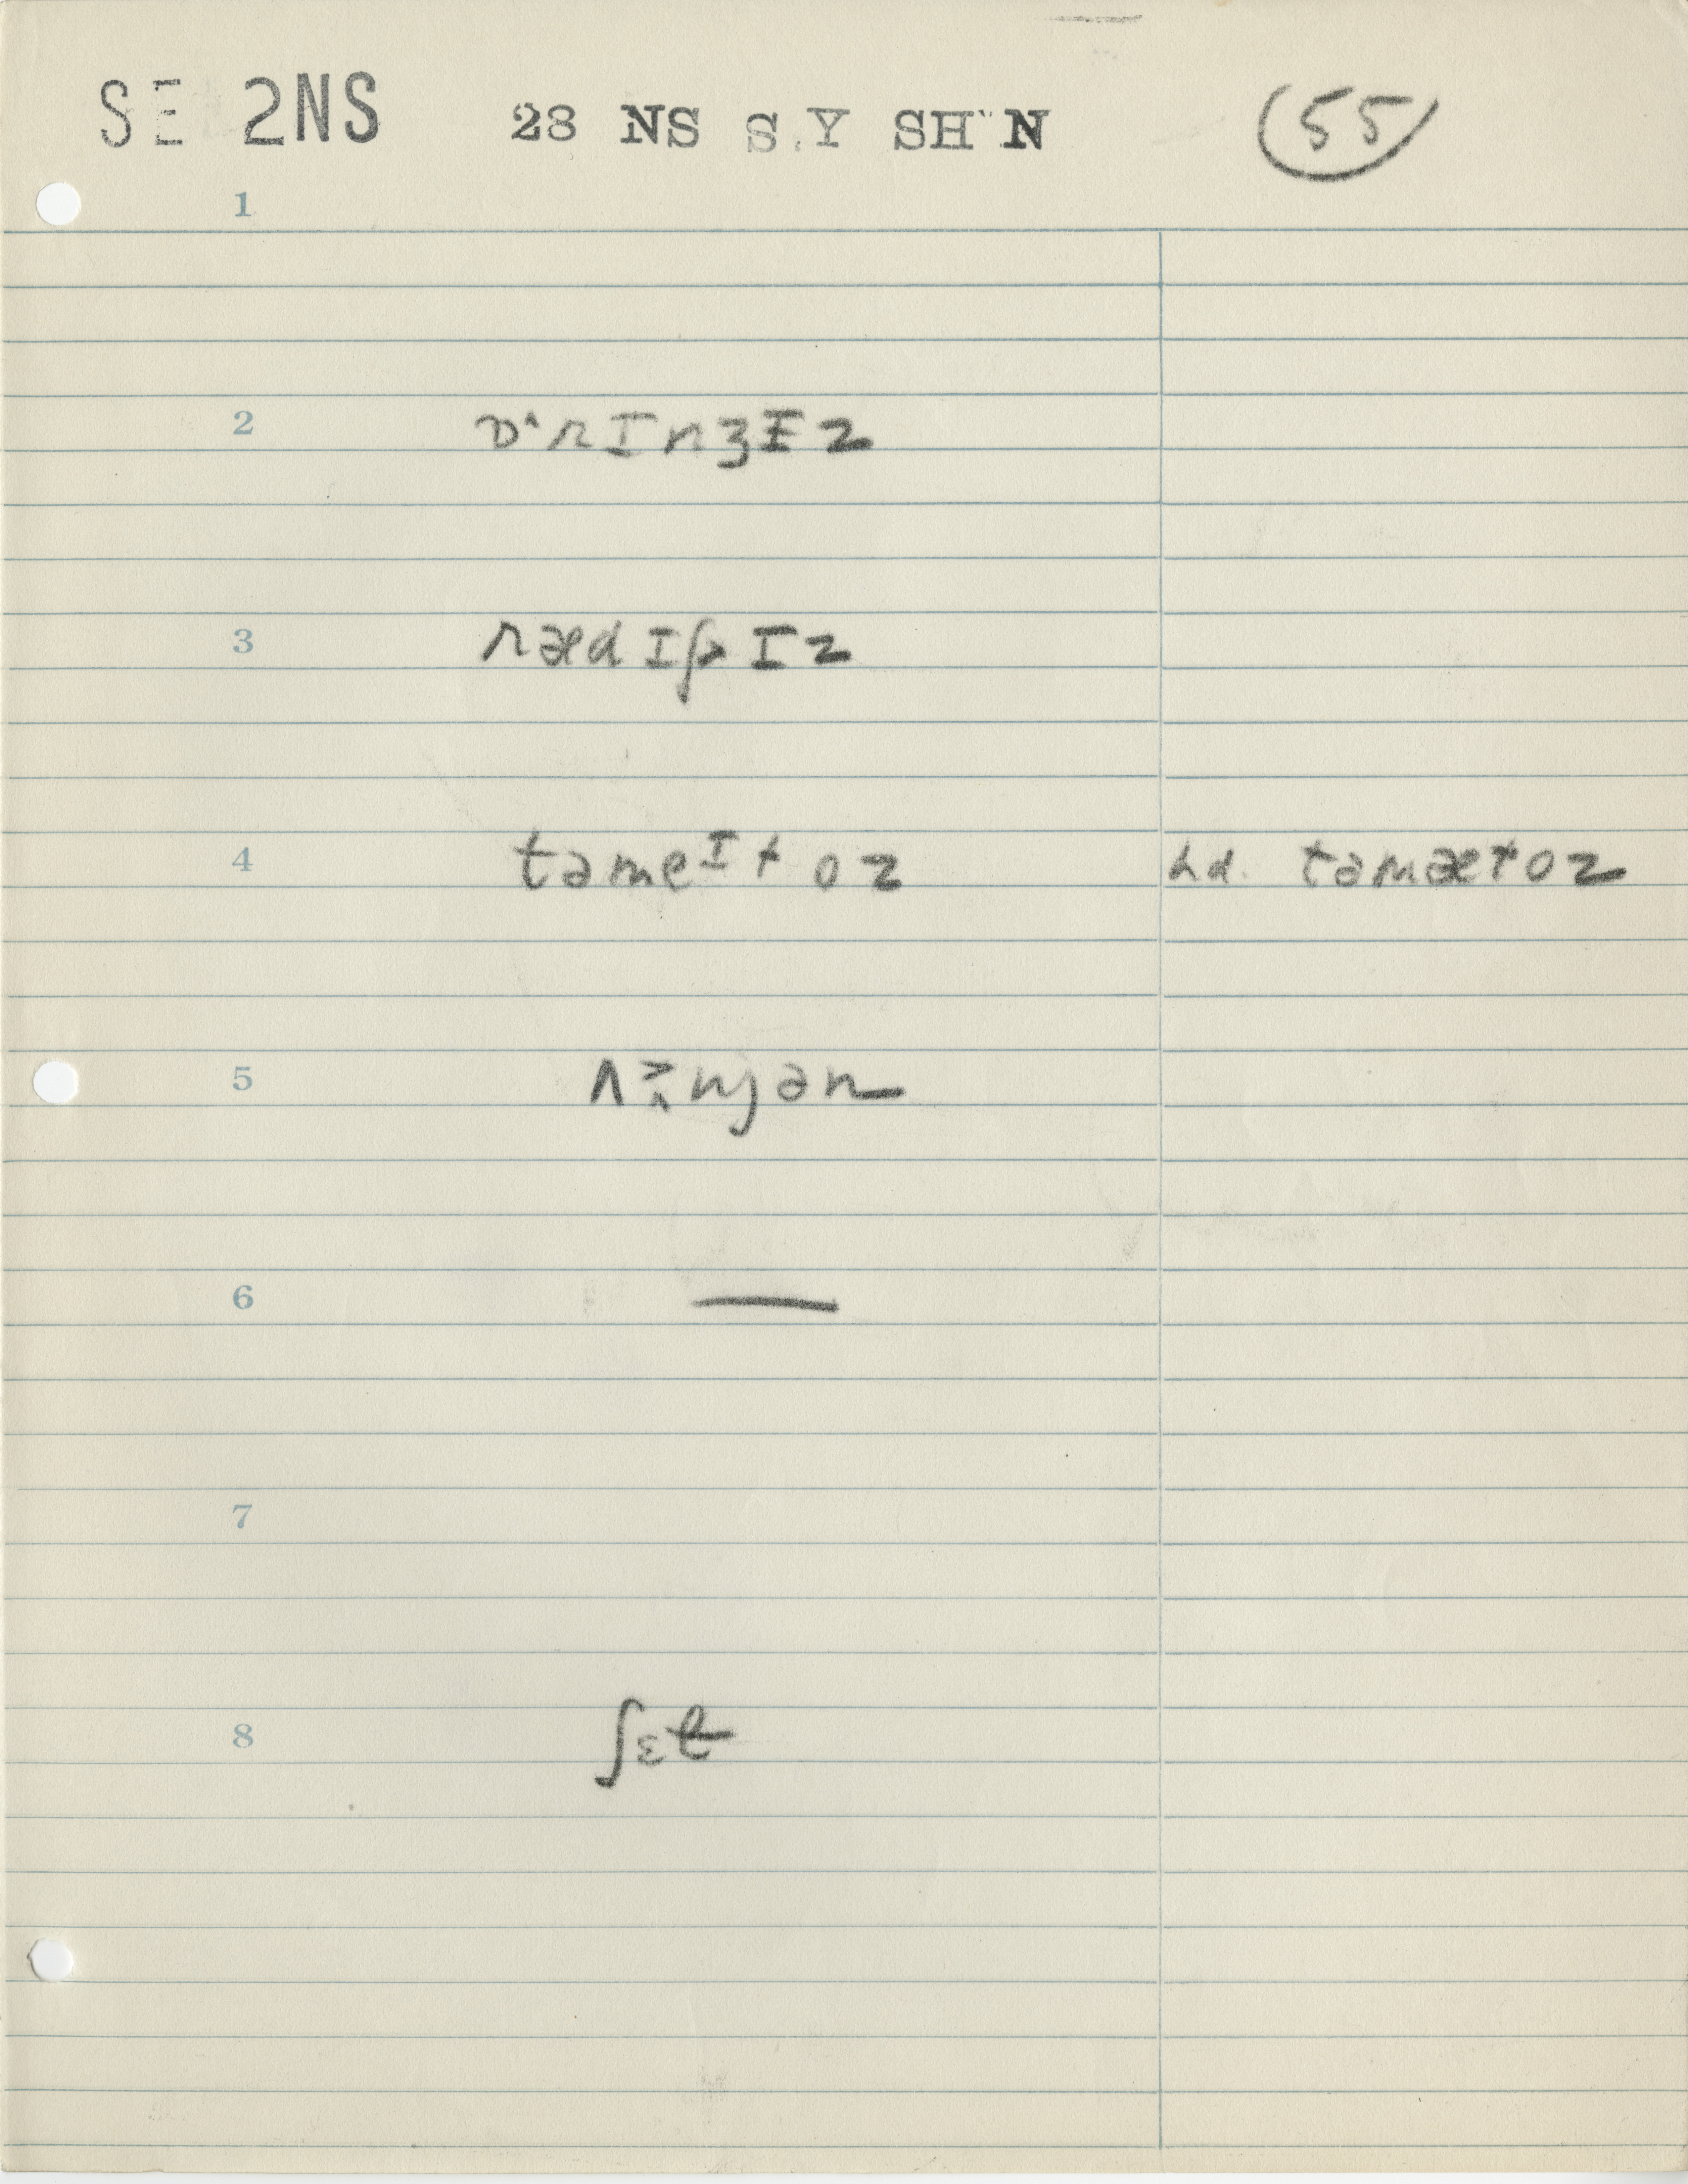 SE 2NS 28 NS S.Y SH N 55
1
2 ɒ˄rɪnʒɪz
3 rædɪʃɪz
4 təmeᴵtoz hd. təmætoz
5 ʌ˃njən
6 —
7
8 ʃɛt